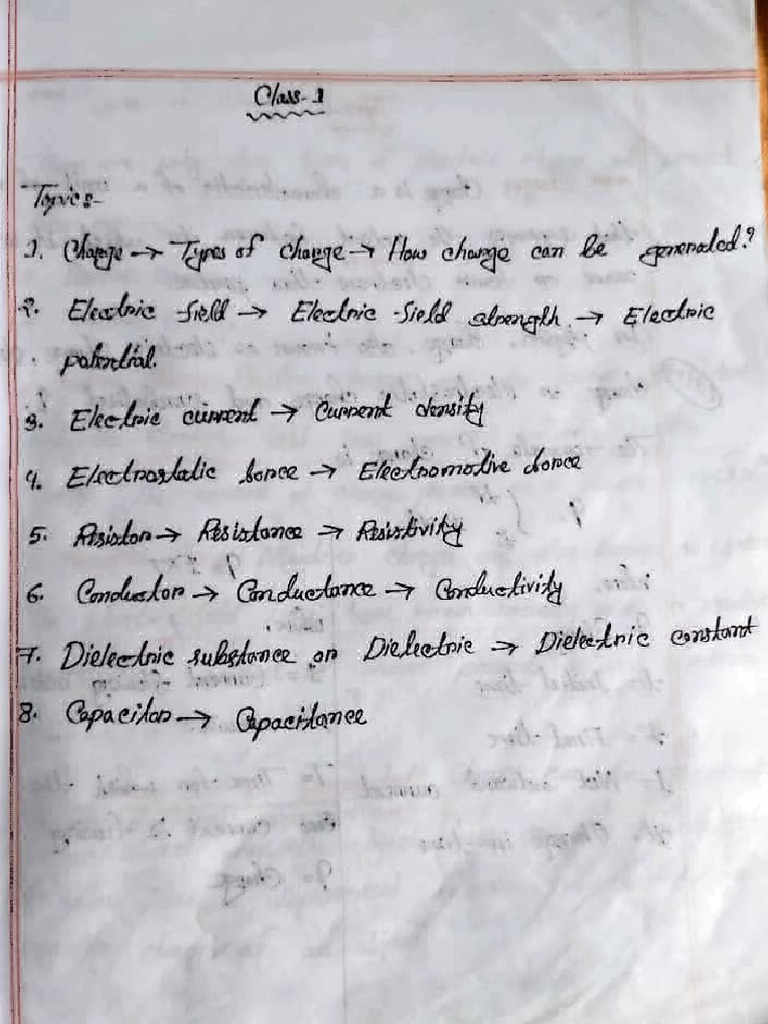 Class-1
Topics-
1. Charge → Types of charge → How charge can be generated?
2. Electric field → Electric field strength → Electric
potential.
3. Electric current → Current density
4. Electrostatic force → Electromotive force
5. Resistor → Resistance → Resistivity
6. Conductor → Conductance → Conductivity
7. Dielectric substance or Dielectric → Dielectric constant
8. Capacitor → Capacitance